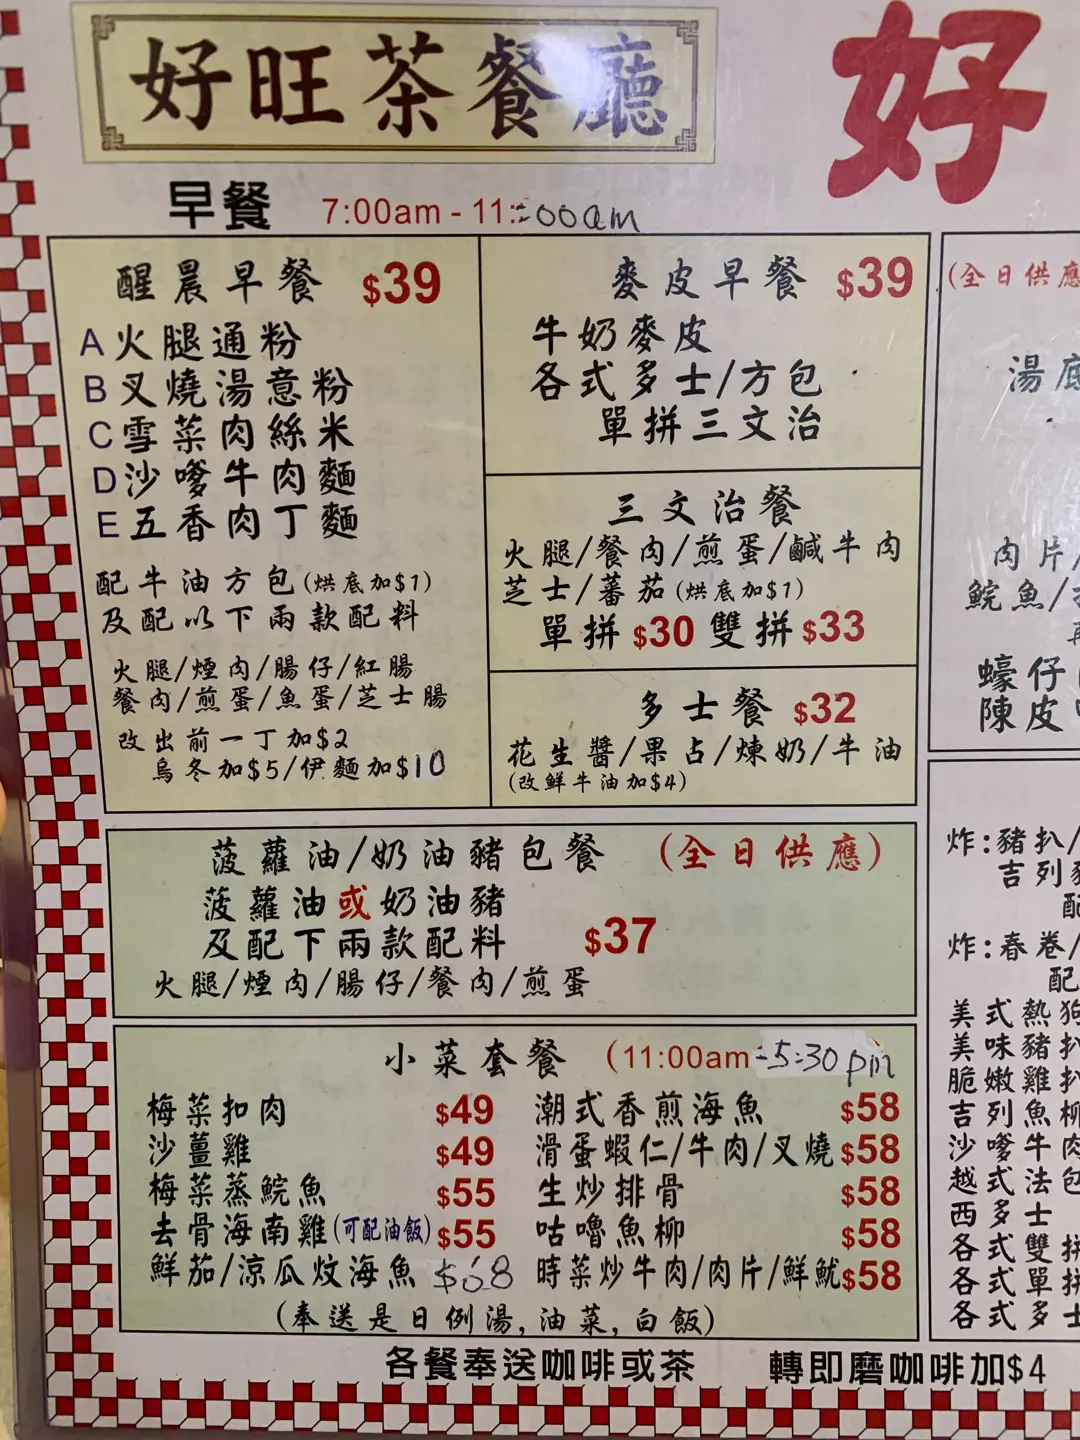 好旺茶餐廳
好
早餐 7:00am - 11:00am
醒晨早餐 $39
A 火腿通粉
B 叉燒湯意粉
C 雪菜肉絲米
D 沙嗲牛肉麵
E 五香肉丁麵
配牛油方包(烘底加$1)
及配以下兩款配料
火腿/煙肉/腸仔/紅腸
餐肉/煎蛋/魚蛋/芝士腸
改出前一丁加$2
烏冬加$5/伊麵加$10
麥皮早餐 $39
牛奶麥皮
各式多士/方包
單拼三文治
三文治餐
火腿/餐肉/煎蛋/鹹牛肉
芝士/蕃茄(烘底加$1)
單拼$30 雙拼$33
多士餐 $32
花生醬/果占/煉奶/牛油
(改鮮牛油加$4)
菠蘿油/奶油豬包餐 (全日供應)
菠蘿油或奶油豬
及配下兩款配料 $37
火腿/煙肉/腸仔/餐肉/煎蛋
小菜套餐 (11:00am-5:30pm)
梅菜扣肉 $49
沙薑雞 $49
梅菜蒸鯇魚 $55
去骨海南雞(可配油飯) $55
鮮茄/涼瓜炆海魚 $68
潮式香煎海魚 $58
滑蛋蝦仁/牛肉/叉燒 $58
生炒排骨 $58
咕嚕魚柳 $58
時菜炒牛肉/肉片/鮮魷 $58
(奉送是日例湯,油菜,白飯)
各餐奉送咖啡或茶 轉即磨咖啡加$4
(全日供應
湯底
肉片/
鯇魚/
蠔仔
陳皮
炸:豬扒/
吉列豬
配
炸:春卷/
配
美式熱狗
美味豬扒
脆嫩雞扒
吉列魚柳
沙嗲牛肉
越式法包
西多士
各式雙拼
各式單拼
各式多士